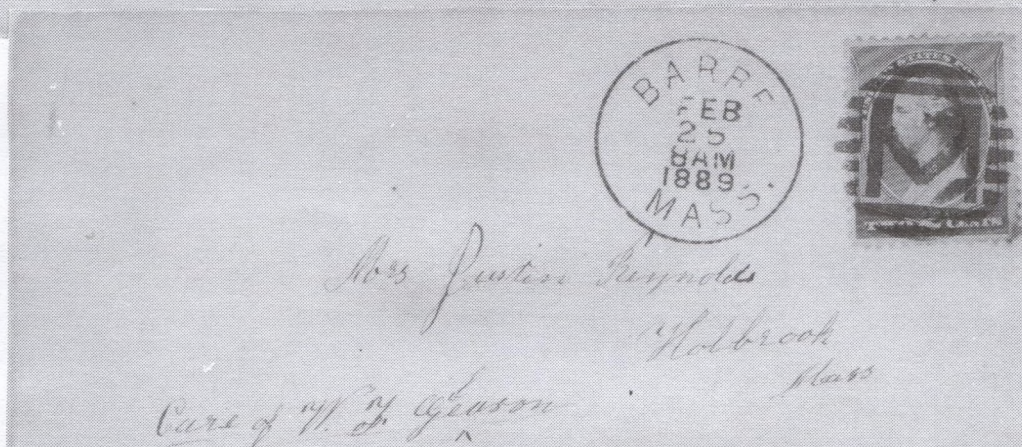 BARRE
FEB
25
8AM
1889
MASS.
STATES
TWO CENTS
Mrs Justin Reynolds
Holbrook
Mass
Care of W. F. Gleason